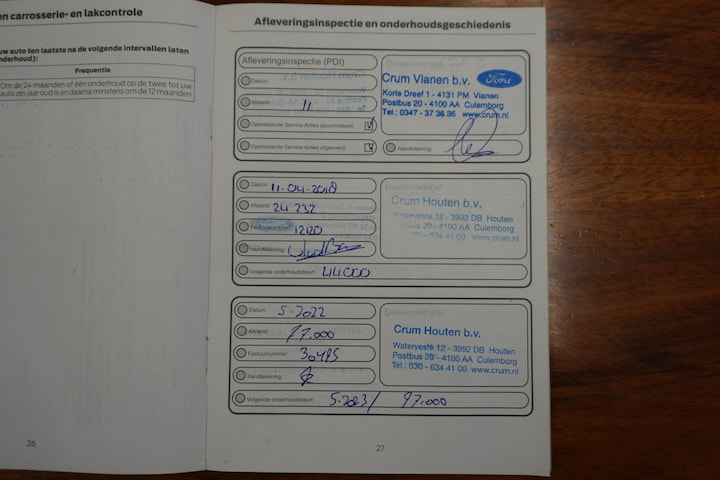 en carrosserie- en lakcontrole
uw auto ten laatste na de volgende intervallen laten
nderhoud):
Frequentie
Om de 24 maanden of één onderhoud op de twee tot uw
auto zes jaar oud is en daarna minstens om de 12 maanden
26
Afleveringsinspectie en onderhoudsgeschiedenis
Afleveringsinspectie (PDI)
Datum:
Afstand: 11
Openstaande Service Acties gecontroleerd:
Openstaande Service Acties uitgevoerd:
Dealerstempel:
Crum Vianen b.v. Ford
Korte Dreef 1 - 4131 PM Vianen
Postbus 20 - 4100 AA Culemborg
Tel.: 0347 - 37 36 36 www.crum.nl
Handtekening:
Datum: 11-04-2018
Afstand: 24 232
Factuurnummer: 12120
Handtekening:
Volgende onderhoudsbeurt: 44000
Dealerstempel:
Crum Houten b.v.
Waterveste 12 - 3992 DB Houten
Postbus 20 - 4100 AA Culemborg
- 634 41 00 www.crum.nl
Datum: 5-2022
Afstand: 77.000
Factuurnummer: 30495
Handtekening:
Volgende onderhoudsbeurt: 5-2023/ 97.000
Dealerstempel:
Crum Houten b.v.
Waterveste 12 - 3992 DB Houten
Postbus 20 - 4100 AA Culemborg
Tel.: 030 - 634 41 00 www.crum.nl
27